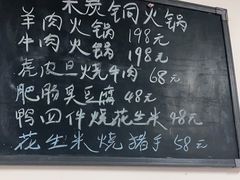 木炭铜火锅
羊肉火锅 198元
牛肉火锅 198元
虎皮旦烧牛肉 68元
肥肠臭豆腐 48元
鸭四件烧花生米 48元
花生米烧猪手 58元